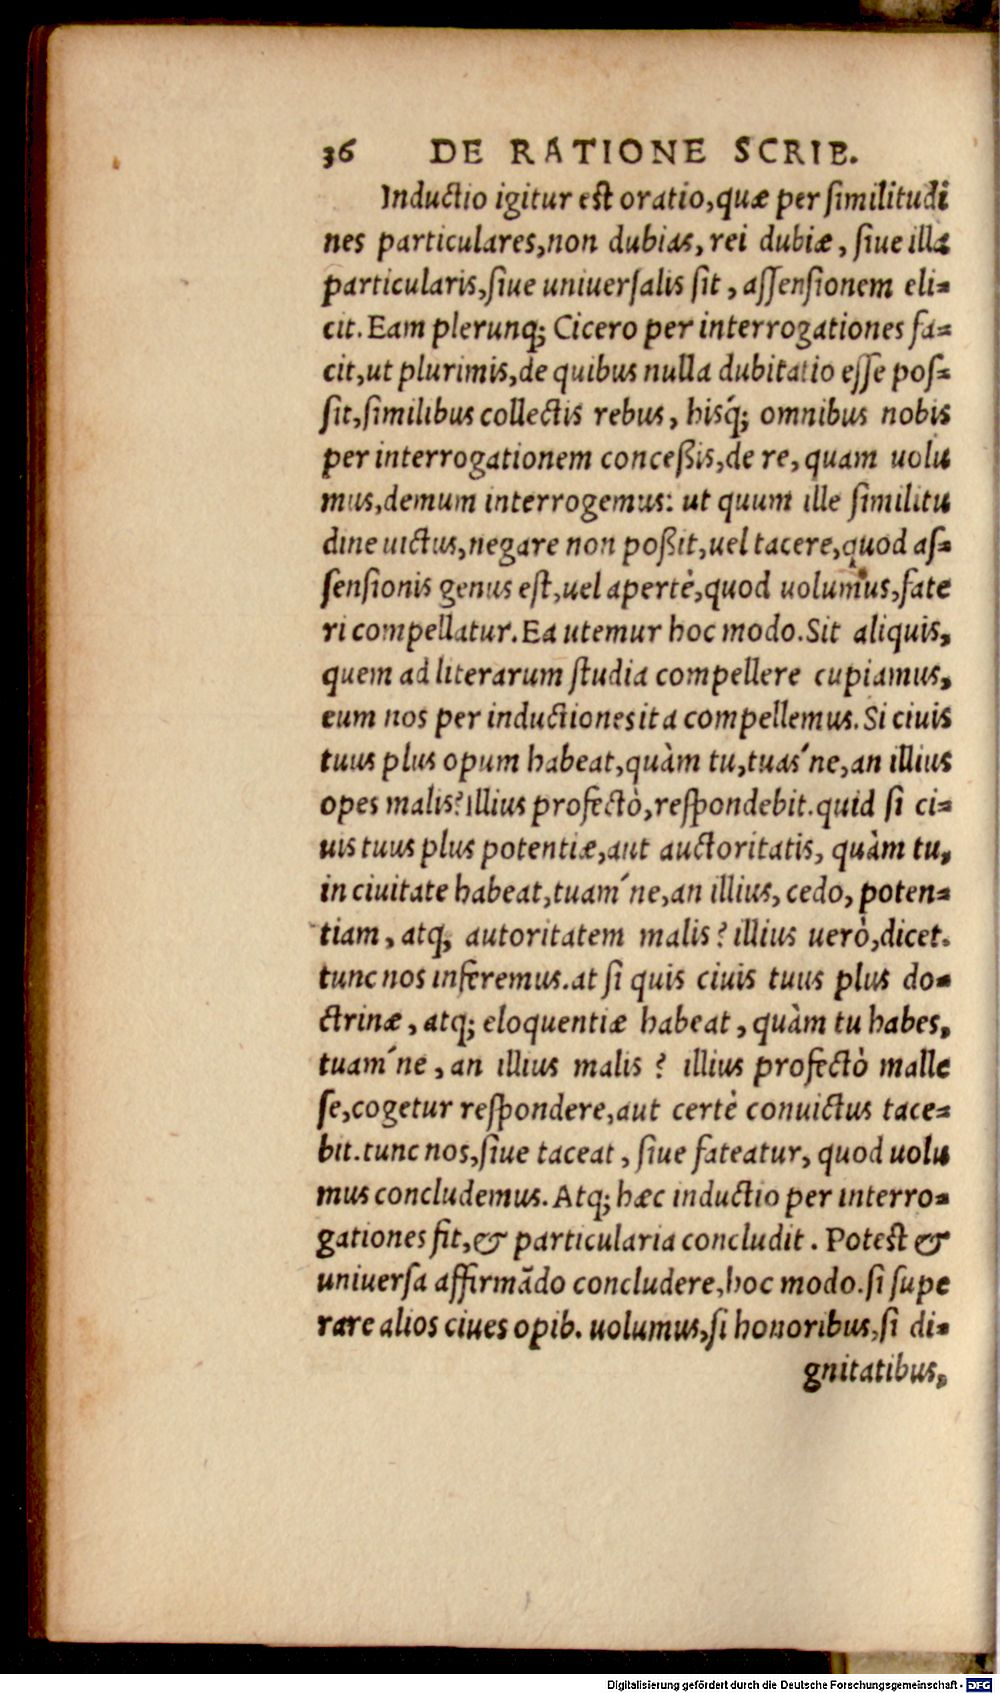 36 DE RATIONE SCRIB.
Inductio igitur est oratio, quæ per similitudi
nes particulares, non dubias, rei dubiæ, siue illa
particularis, siue uniuersalis sit, assensionem eli=
cit. Eam plerunq; Cicero per interrogationes fa=
cit, ut plurimis, de quibus nulla dubitatio esse pos=
sit, similibus collectis rebus, hisq́; omnibus nobis
per interrogationem conceßis, de re, quam uolu
mus, demum interrogemus: ut quum ille similitu
dine uictus, negare non poßit, uel tacere, quod as=
sensionis genus est, uel apertè, quod uolumus, fate
ri compellatur. Ea utemur hoc modo. Sit aliquis,
quem ad literarum studia compellere cupiamus,
eum nos per inductiones ita compellemus. Si ciuis
tuus plus opum habeat, quàm tu, tuas´ne, an illius
opes malis? illius profectò, respondebit. quid si ci=
uis tuus plus potentiæ, aut auctoritatis, quàm tu,
in ciuitate habeat, tuam´ne, an illius, cedo, poten=
tiam, atq; autoritatem malis? illius uerò, dicet.
tunc nos inferemus. at si quis ciuis tuus plus do=
ctrinæ, atq; eloquentiæ habeat, quàm tu habes,
tuam´ne, an illius malis? illius profectò malle
se, cogetur respondere, aut certè conuictus tace=
bit. tunc nos, siue taceat, siue fateatur, quod uolu
mus concludemus. Atq; hæc inductio per interro=
gationes fit, & particularia concludit. Potest &
uniuersa affirmãdo concludere, hoc modo. si supe
rare alios ciues opib. uolumus, si honoribus, si di=
gnitatibus,
Digitalisierung gefördert durch die Deutsche Forschungsgemeinschaft - DFG